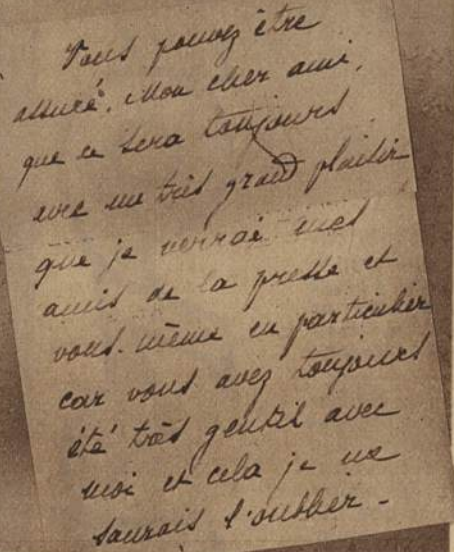 Vous pouvez être
assuré, Mon cher ami,
que ce sera toujours
avec un très grand plaisir
que je verrai mes
amis de la presse et
vous-même en particulier
car vous avez toujours
été très gentil avec
moi et cela je ne
saurais l'oublier -